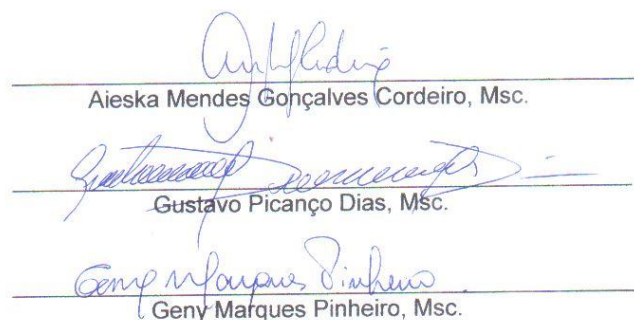 Aieska Mendes Gonçalves Cordeiro, Msc.
Gustavo Picanço Dias, Msc.
Geny Marques Pinheiro
Geny Marques Pinheiro, Msc.